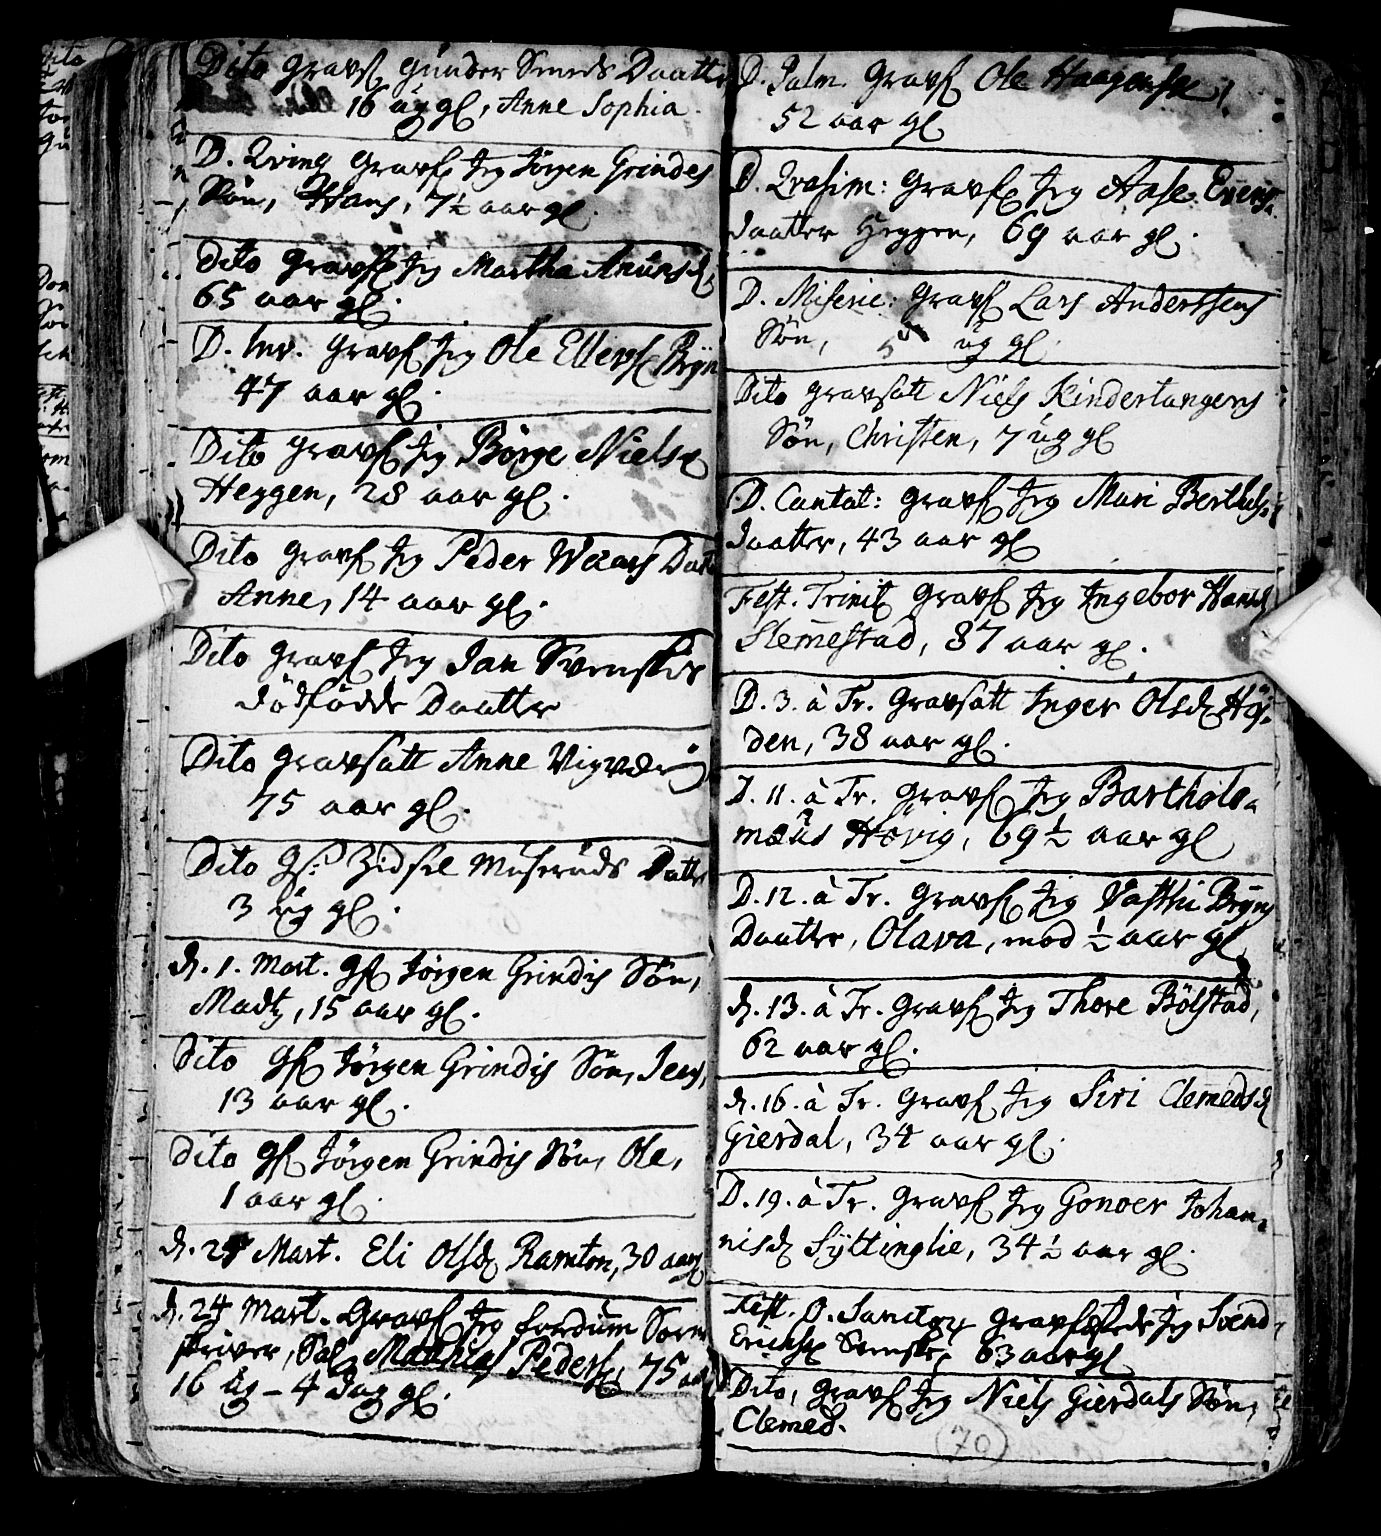 Dito Gravf Gunder Smeds Daatter
16 ug gl, Anne Sophia
D. Qving Gravf Jeg Jörgen Grindes
Sön, Hans, 7½ aar gl.
Dito Gravf Jeg Martha Anunsd,
65 aar gl.
D. Inv. Gravf Jeg Ole Ellevf Bryn
47 aar gl.
Dito Gravf Jeg Börge Niels
Heggen, 28 aar gl.
Dito Gravf Jeg Peder Waars Datt
Anne, 14 aar gl.
Dito Gravf Jeg Jan Svenskes
dödfödde Daatter
Dito Gravsatt Anne
75 aar gl.
Dito Gf: Zidsel Museruds Datter
3 ug gl.
d. 1. Mart. Gf Jörgen Grindis Sön,
Madz, 15 aar gl.
Dito Gf Jörgen Grindis Sön, Jens,
13 aar gl.
Dito Gf Jörgen Grindis Sön, Ole,
1 aar gl.
Mart. Eli Olsd Ramton, 30 aar
d. 24 Mart. Gravf Jeg fordum Soren
skriver, Sal Matthias Pedersf, 75 aar
16 ug – 4 Dag gl.
D. Palm. Gravf Ole Haagensen
52 aar gl
D. Qvasim: Gravf Jeg Aase Evens-
daatter Heggen, 69 aar gl.
D. Miseric: Gravf Lars Anderssens
Sön, ug gl.
Dito Gravsatt Niels Kindertangens
Sön, Christen, 7 ug gl
D. Cantat: Gravf Jeg Mari Berthels-
daatter, 43 aar gl
Fest. Trinit Gravf Jeg Ingebor Hansd
Slemestad, 87 aar gl.
D. 3. à Tr. Gravsatt Inger Olsd Höj-
den, 38 aar gl.
D. 11. à Tr. Gravf Jeg Bartholo-
mæus Hövig, 69½ aar gl
D. 12. à Tr. Gravf Jeg Bryns
Daatter, Olava, mod ½ aar gl
d. 13. à Tr. Gravf Jeg Thore Bölstad,
62 aar gl.
d. 16. à Tr. Gravf Jeg Siri Clemedsd
Gierdal, 34 aar gl.
D. 19. à Tr. Gravf Jeg Gonoer Johan-
nisd Syttinglie, 34½ aar gl.
Fest. O. Sanctor Gravfæstede Jeg Svend
Ericksf Svenske, 63 aar gl
Dito, Gravf Jeg Niels Gierdals Sön,
Clemed.
70